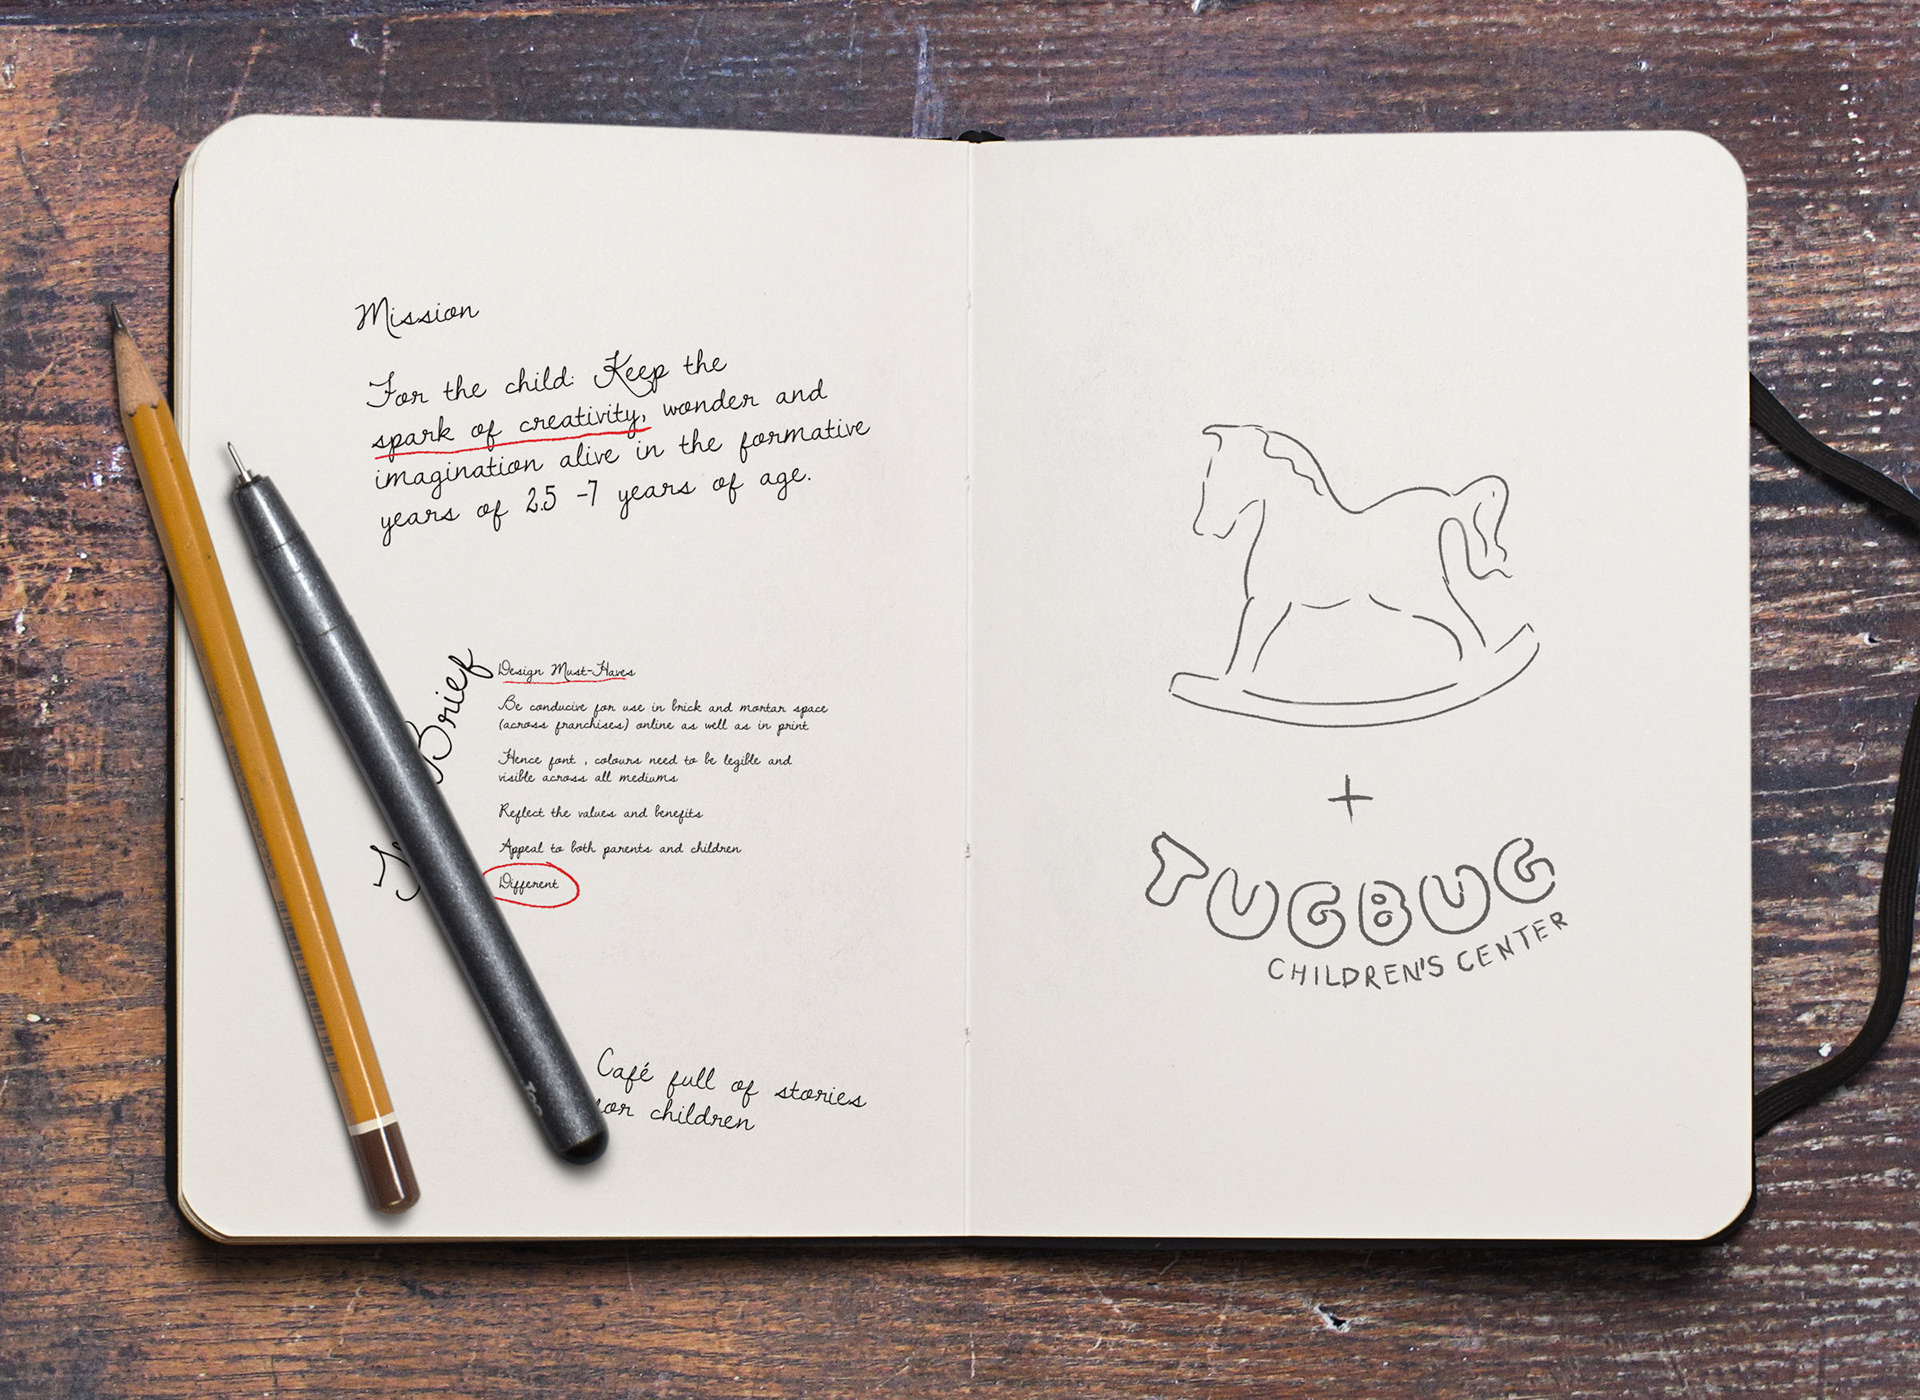 Mission
For the child: Keep the
spark of creativity, wonder and
imagination alive in the formative
years of 2.5 -7 years of age.
Brief
Design Must-Haves
Be conducive for use in brick and mortar space
(across franchises) online as well as in print
Hence font , colours need to be legible and
visible across all mediums
Reflect the values and benefits
Appeal to both parents and children
Different
Café full of stories
for children
+
TUGBUG
CHILDREN'S CENTER